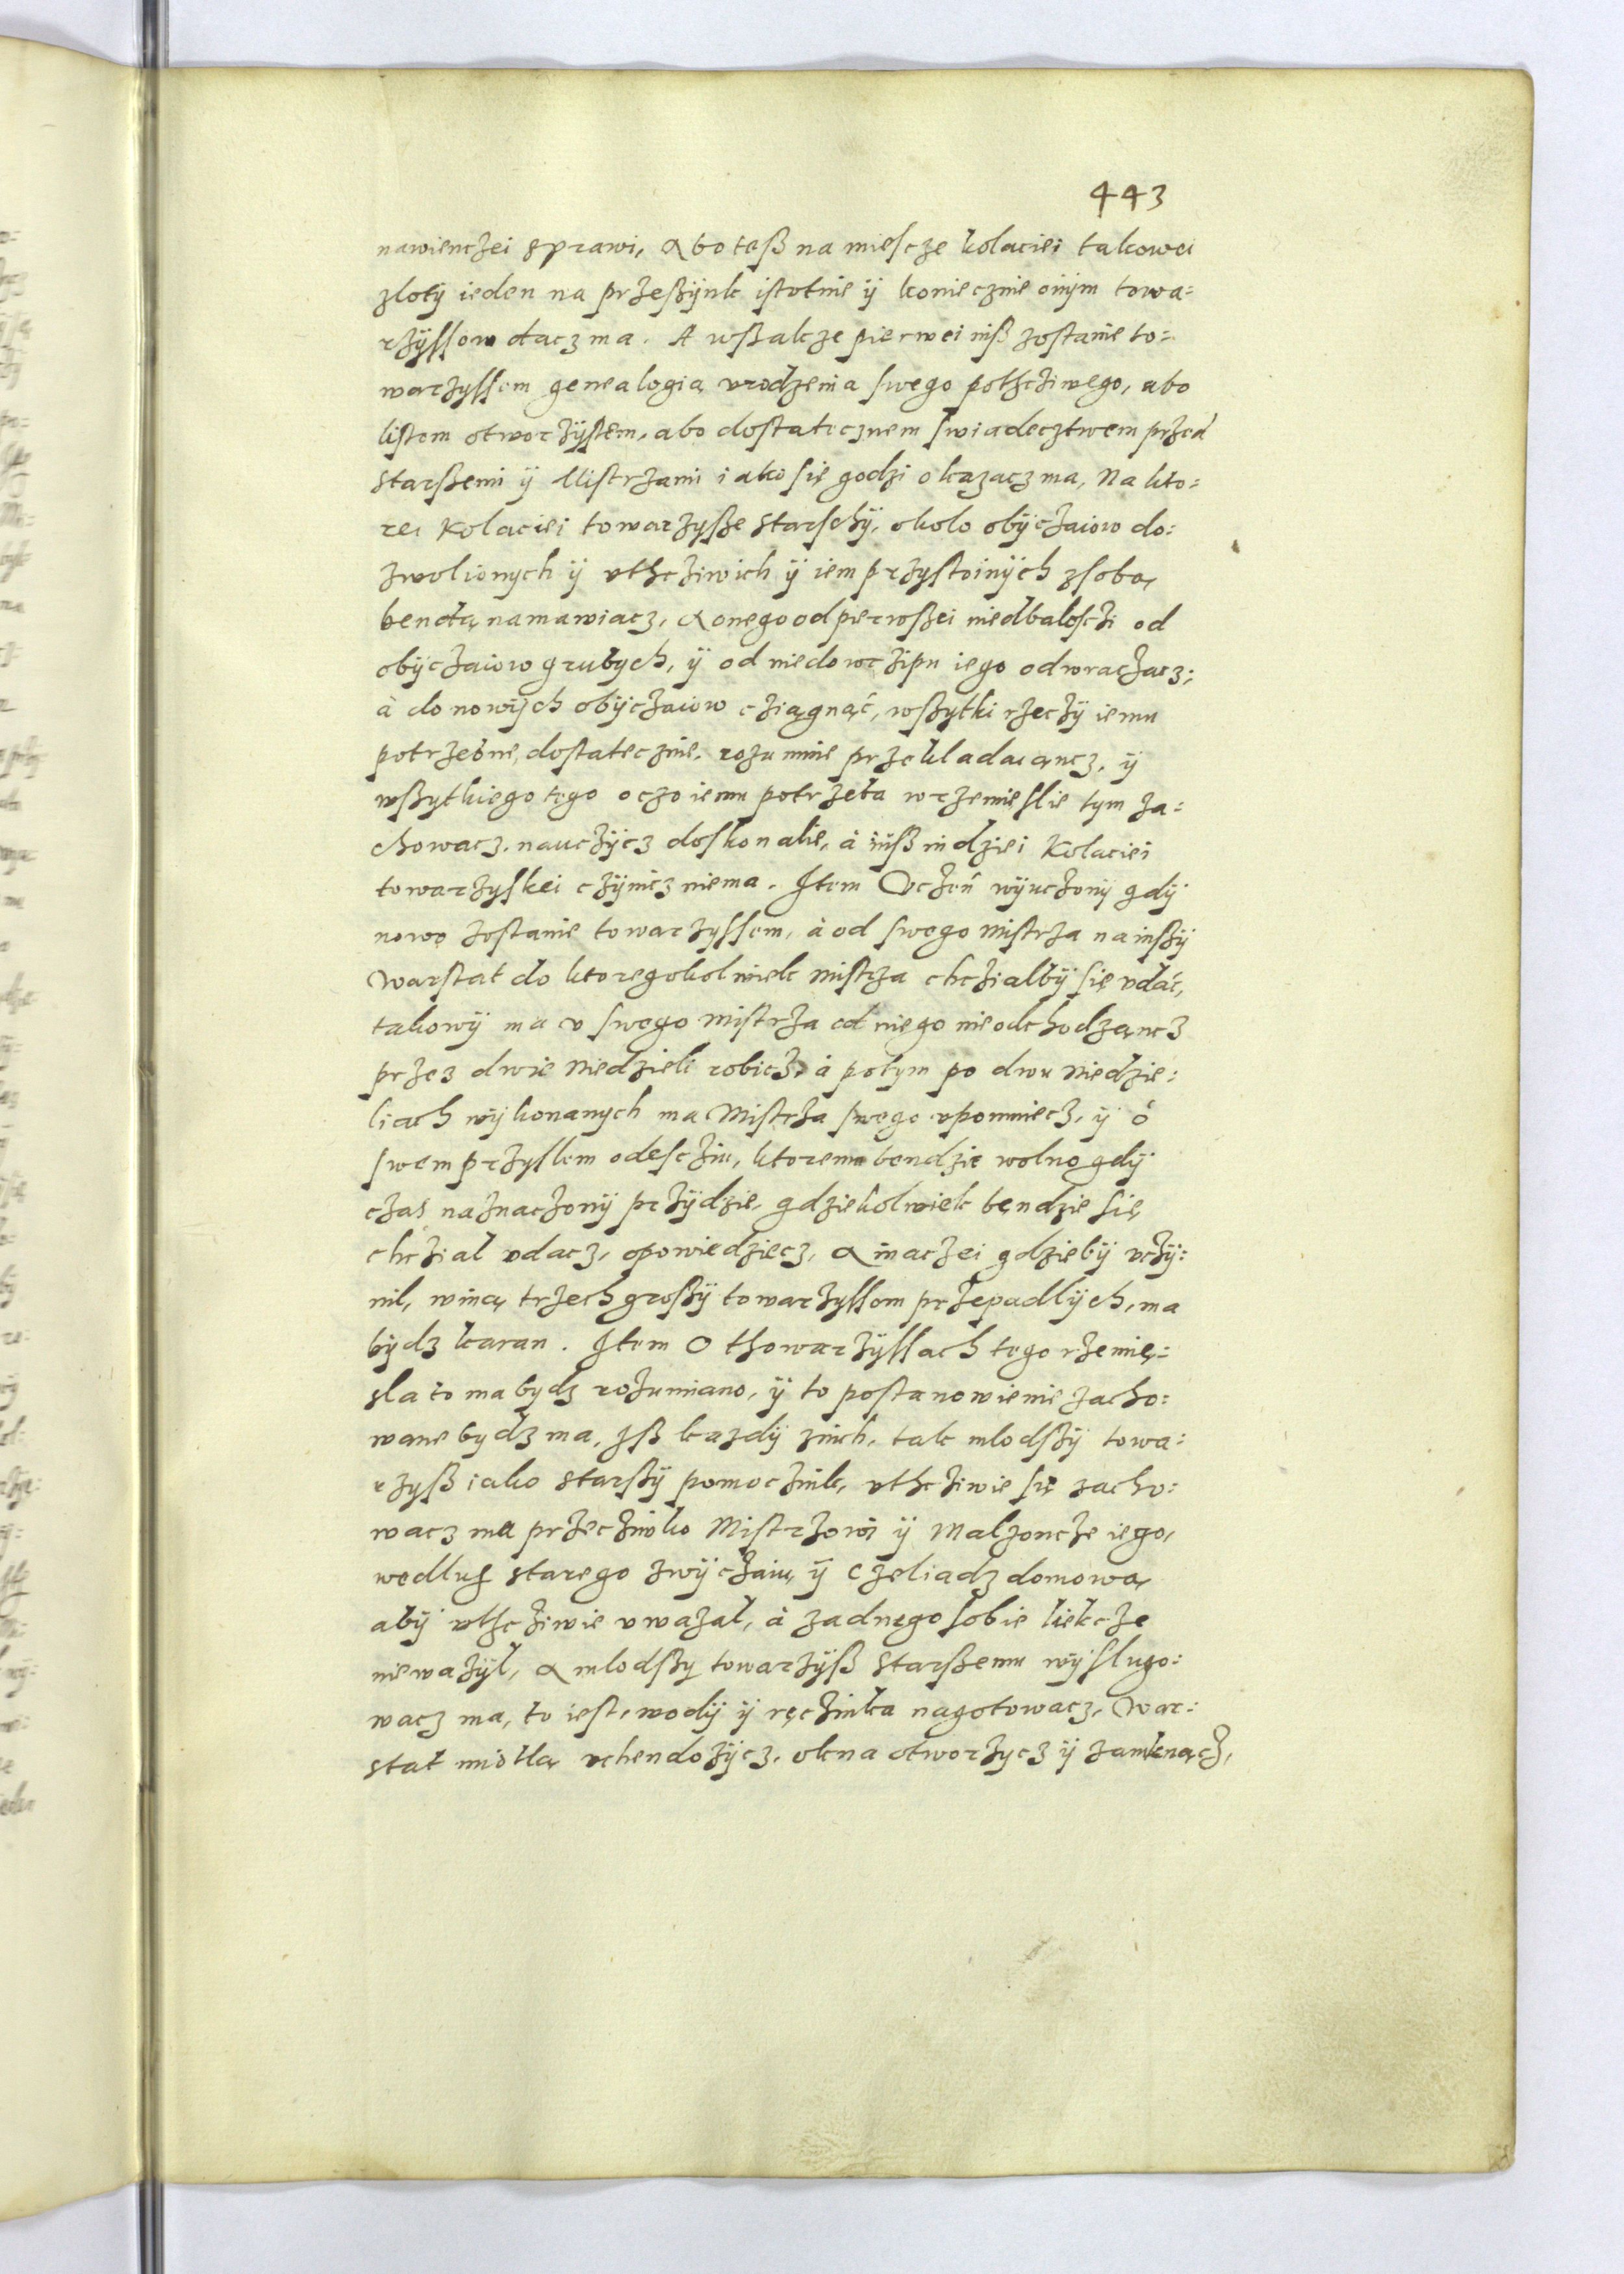 443
nawienczei sprawi, Abo tesß na miescze kolaciei takowei
zloty ieden na przeßÿnk istotnie ÿ koniecznie onÿm towa=
rzÿssom dacz ma. A wßakze pierwei niß zostanie to=
warzyssem genealogią vrodzenia swego pothcziwego, abo
listem otworzÿstem, abo dostatecznem swiadecztwem przed
starßemi ÿ Mistrzami iako się godzi okazacz ma, Na kto=
rei Kolaciei towarzyße starschÿ, okolo obÿczaiow do=
zwolionych ÿ vthcziwich ÿ iem przystoinÿch zsobą
bendą namawiacz, A onego od pierwßei niedbalosczi od
obÿczaiow grubych, ÿ od niedowczipu iego odwraczacz;
à do nowÿch obÿczaiow cziągnąć, wßytki rzeczÿ iemu
potrzebne, dostatecznie, rozumnie przekladaiąncz, ÿ
wßytkiego tego oczo iemu potrzeba wrzemieslie tym za=
chowacz, nauczÿcz doskonalie, à iuß indziei Kolaciei
towarzyskei czÿnicz niema. Item Vczeń wÿuczonÿ gdÿ
nowo zostanie towarzyssem, à od swego mistrza na inßÿ
Warstat do ktoregokolwiek mistrza chczialbÿ się vdać,
takowÿ ma v swego mistrza od niego nieodchodząncz
przez dwie niedzieli robicz, à potym po dwu niedzie=
liach wÿkonanych ma Mistrza swego vpomniecz, ÿ ò
swem przyslem odesczin, ktoremu bendzie wolno gdÿ
czas naznaczonÿ przÿdzie, gdziekolwiek będzie się
chczial vdacz, opowiedziecz, A inaczei gdziebÿ vczÿ=
nil, winą trzech großÿ towarzyssom przepadlÿch, ma
bÿdz karan. Item O thowarzÿssach tego rzemię=
sla to ma bydz rozumiano, ÿ to postanowienie zacho=
wane bydz ma, Iß kazdÿ znich, tak mlodßÿ towa=
rzyß iako starßÿ pomocznik, vthcziwie się zacho=
wacz ma przecziwko Mistrzowi ÿ Malzoncze iego,
wedlug starego zwÿczaiu, ÿ Czeliadz domową,
abÿ vthcziwie vwazal, à zadnego sobie liekcze
niewazÿl, A mlodßy towarzÿß starßemu wÿslugo=
wacz ma, to iest, wodÿ ÿ ręcznika nagotowacz, War=
stat miotlą vchendozÿcz, okna otworzycz ÿ zamknącz,